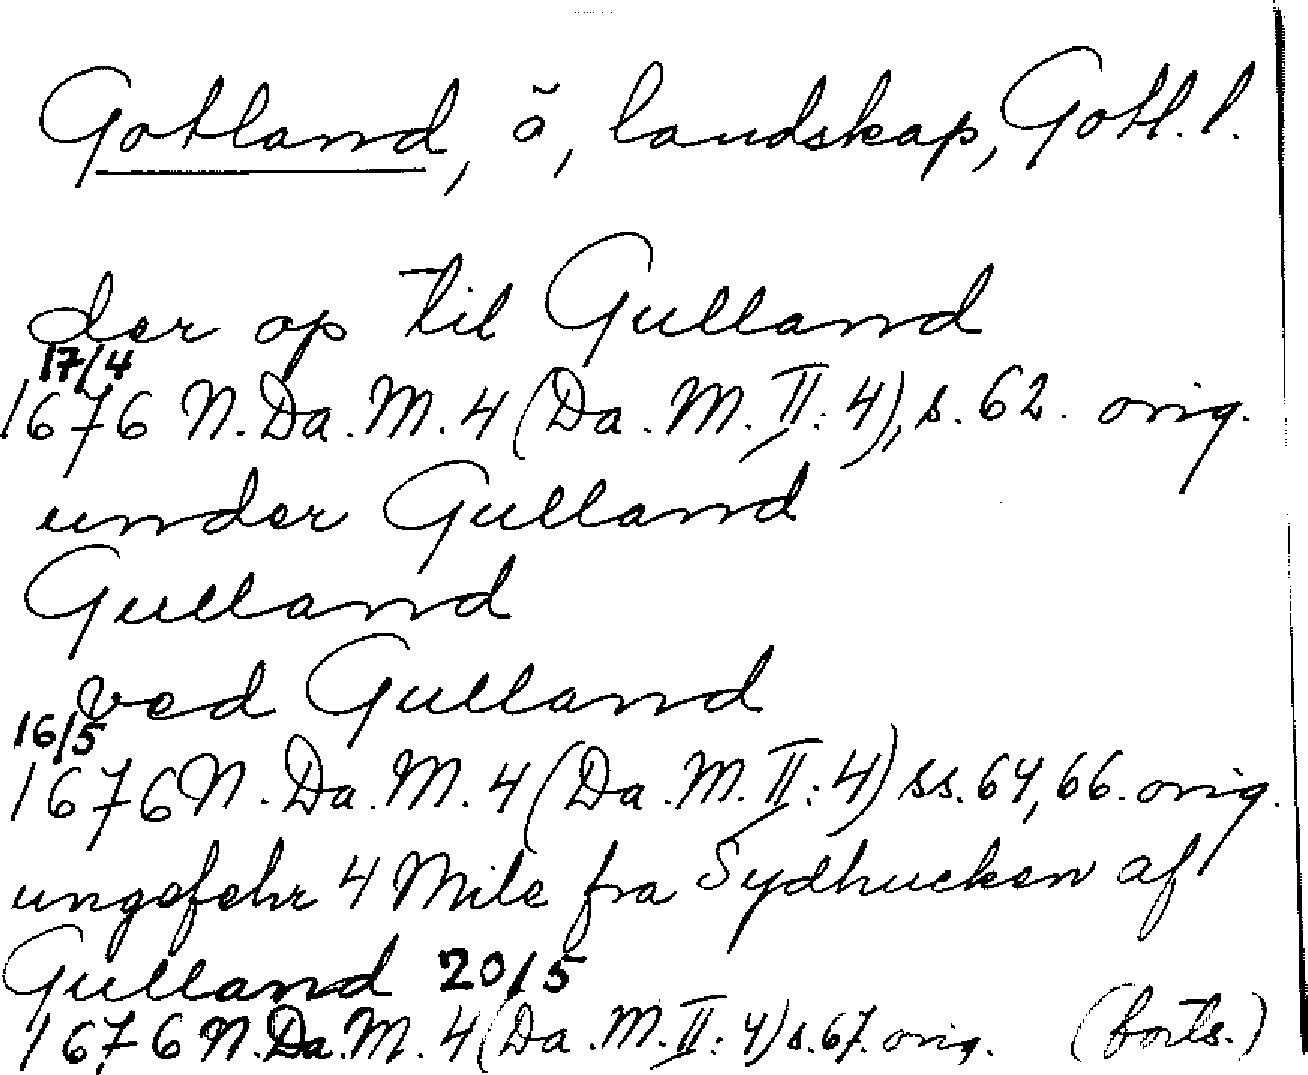 Gotland, ö, landskap, Gotl. l.
der op til Gulland
17/4
1676 N. Da. M. 4 (Da. M. II: 4), s. 62. orig.
under Gulland
Gulland
ved Gulland
16/5
1676 N. Da. M. 4 (Da. M. II: 4) ss. 64, 66. orig.
ungefehr 4 Mile fra Sydhucken af
Gulland 20/5
1676 N. Da. M. 4 (Da. M. II: 4) s. 67. orig. (forts.)